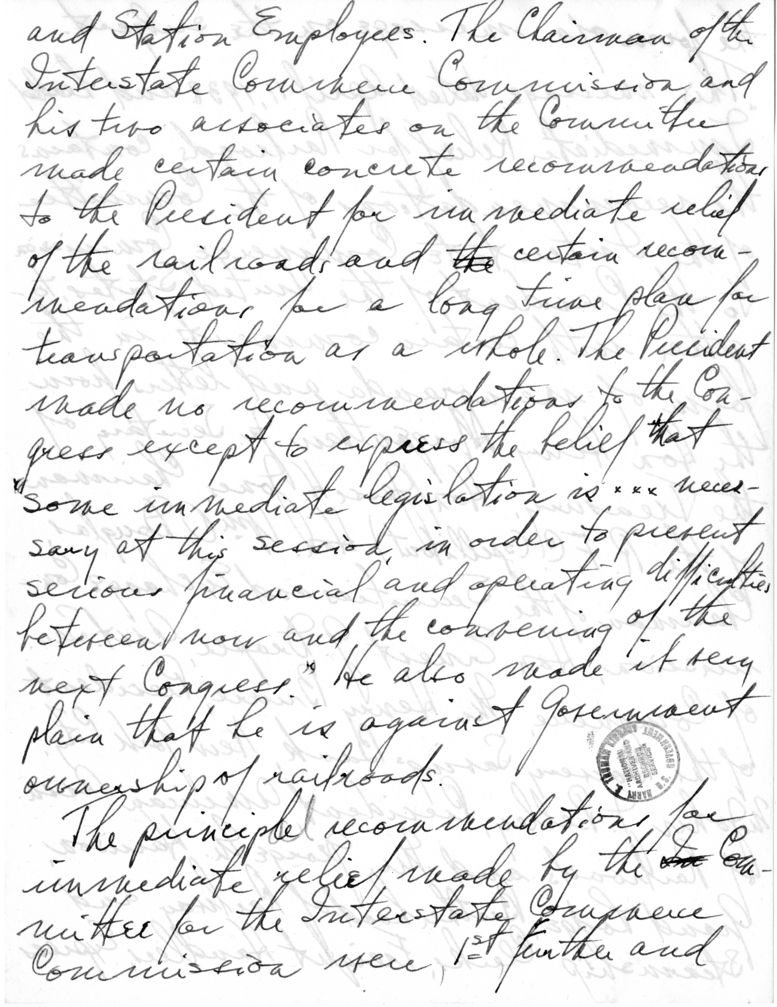 and Station Employees. The Chairman of the
Interstate Commerce Commission and
his two associates on the Committee
made certain concrete recommendations
to the President for immediate relief
of the railroads and the certain recom-
mendations for a long time plan for
transportation as a whole. The President
made no recommendations to the Con-
gress except to express the belief that
"some immediate legislation is xxx neces-
sary at this session, in order to prevent
serious financial and operating difficulties
between now and the convening of the
next Congress." He also made it very
plain that he is against Government
ownership of railroads.
The principle recommendations for
immediate relief made by the In Com-
mittee for the Interstate Commerce
Commission were, 1st further and
HARRY S.